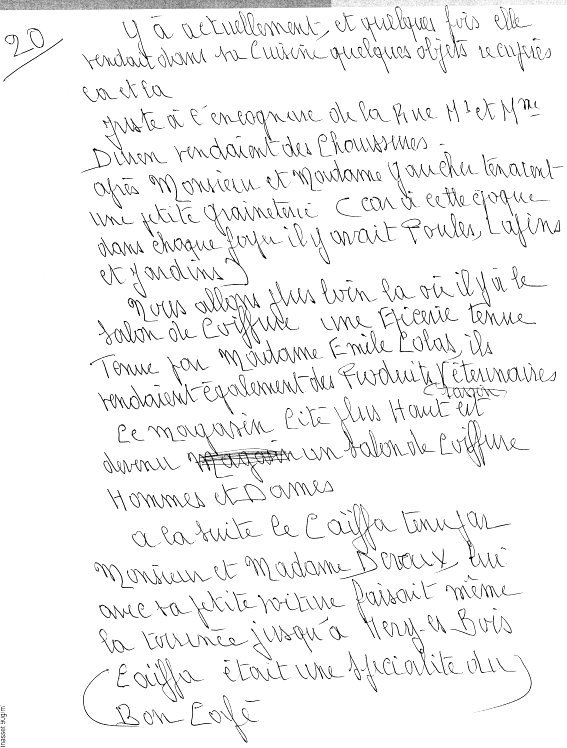 20
Y à actuellement, et quelques fois elle
vendait dans sa Cuisine quelques objets recupérés
ca et la
Juste à l'encognure de la Rue Mr et Mme
vendaient des Chaussures.
après Monsieur et Madame Gaucher tenaient
une petite graineterie (car à cette époque
dans chaque foyer il y avait Poules, Lapins
et Jardins)
Nous allons plus loin la où il y à le
Salon de Coiffure une Epicerie tenue
Tenue par Madame Emile Colas, ils
vendaient également des Produits Véterinaires
Le magasin Cité plus Haut est
devenu un Salon de Coiffure
Hommes et Dames
a la suite le Caïffa tenu par
Monsieur et Madame Devaux, lui
avec sa petite voiture faisait même
la tournée jusqu'à Mery-es-Bois
(Caïffa était une spécialité du
Bon Café